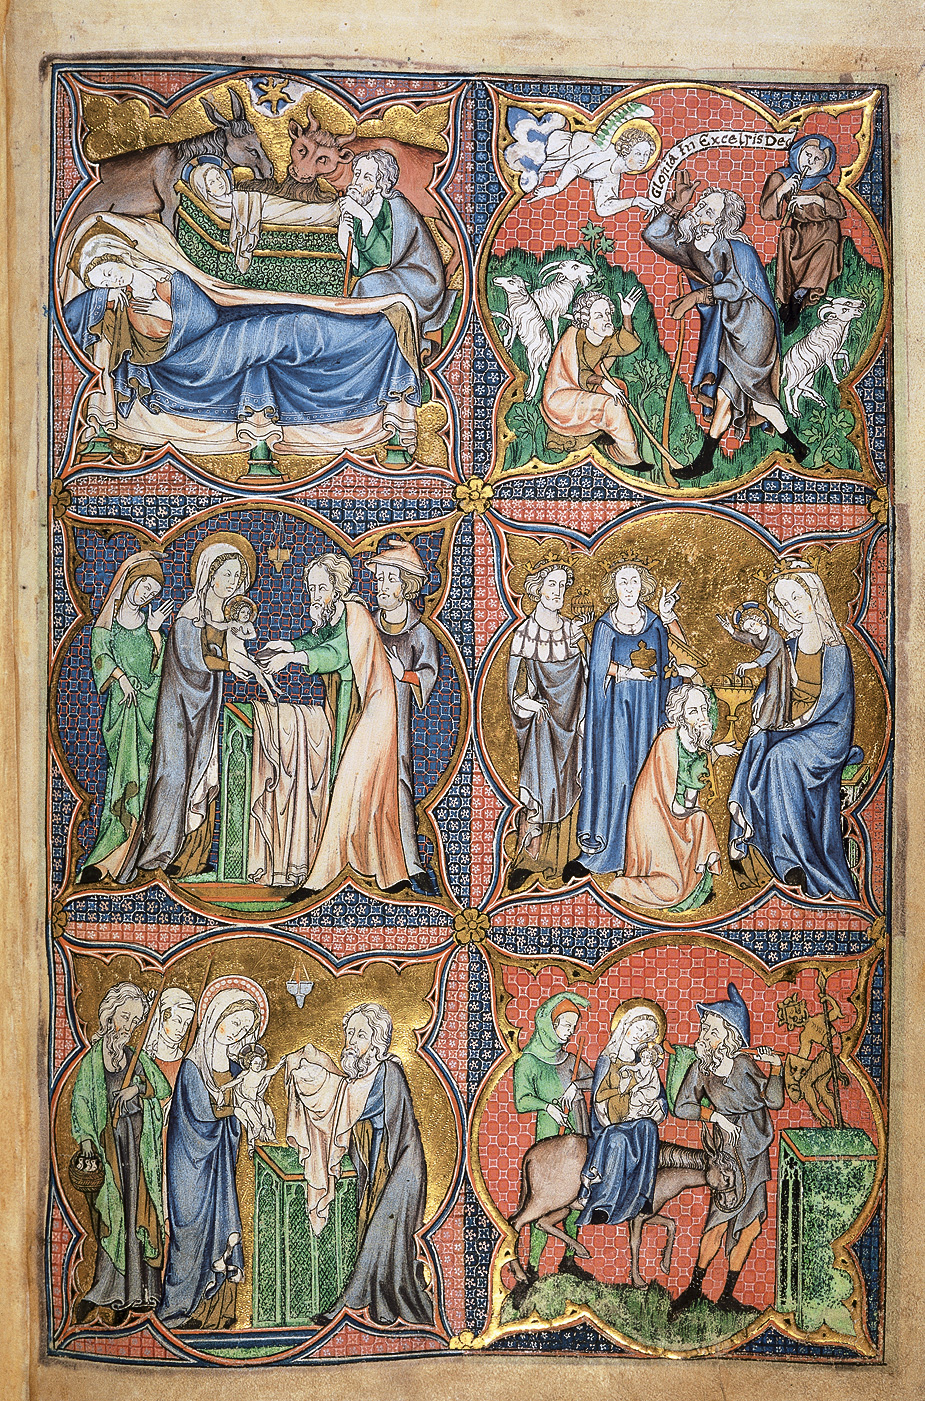 Gloria In Excelsis Deo